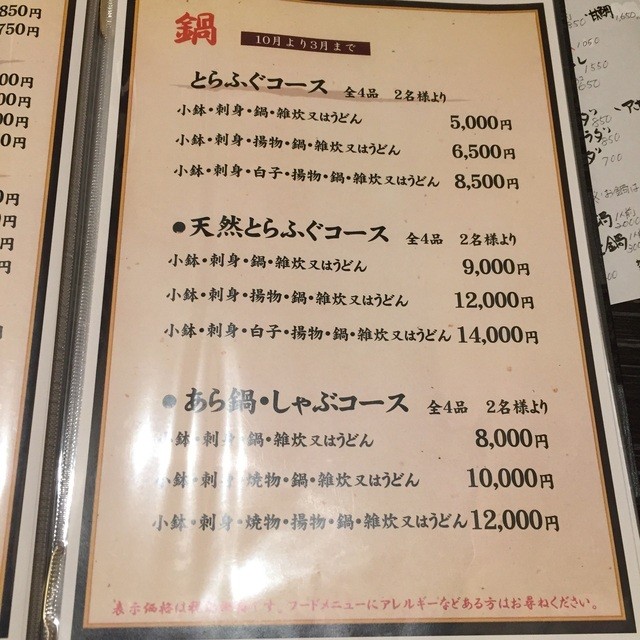 鍋
10月より3月まで
とらふぐコース 全4品 2名様より
小鉢・刺身・鍋・雑炊又はうどん 5,000円
小鉢・刺身・揚物・鍋・雑炊又はうどん 6,500円
小鉢・刺身・白子・揚物・鍋・雑炊又はうどん 8,500円
●天然とらふぐコース 全4品 2名様より
小鉢・刺身・鍋・雑炊又はうどん 9,000円
小鉢・刺身・揚物・鍋・雑炊又はうどん 12,000円
小鉢・刺身・白子・揚物・鍋・雑炊又はうどん 14,000円
●あら鍋・しゃぶコース 全4品 2名様より
小鉢・刺身・鍋・雑炊又はうどん 8,000円
小鉢・刺身・焼物・鍋・雑炊又はうどん 10,000円
小鉢・刺身・焼物・揚物・鍋・雑炊又はうどん 12,000円
表示価格は税 です。フードメニューにアレルギーなどある方はお尋ねください。
850円
750円
00円
00円
00円
0円
0円
円
円
円
1050
1550
850
850
700